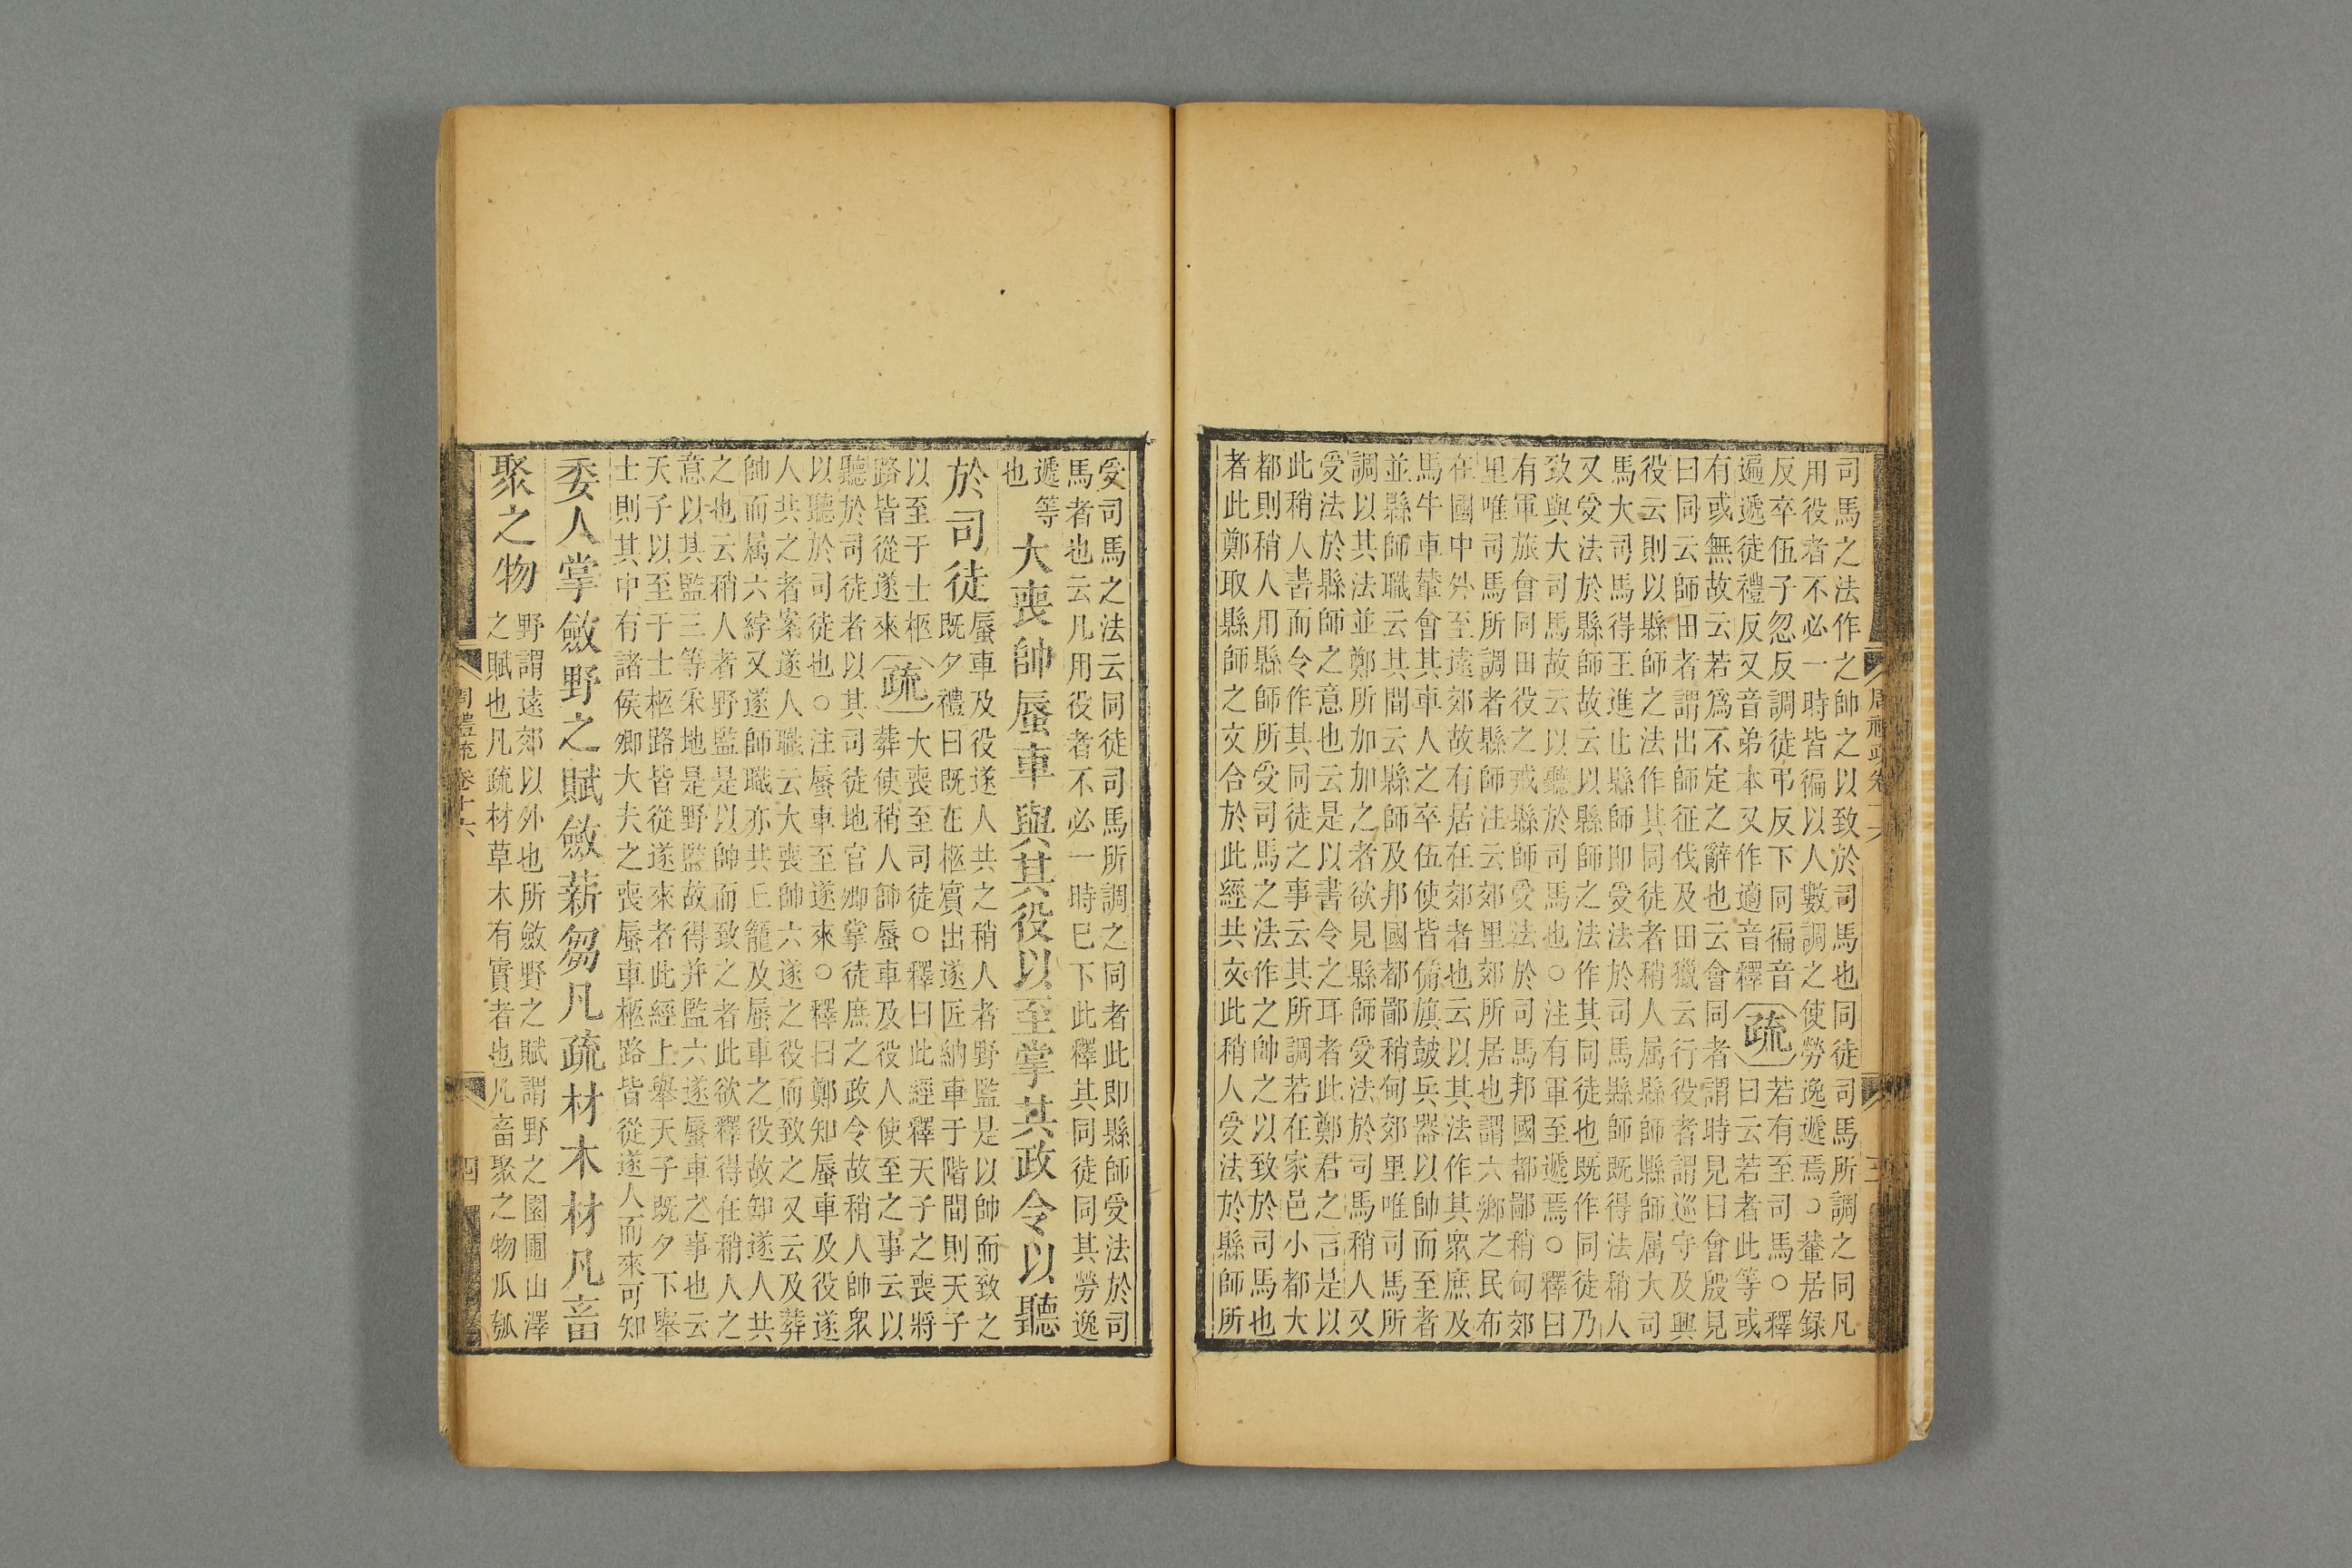 司馬之法作之帥之以致於司馬也同徒司馬所調之同凡
用役者不必一時皆徧以人數調之使勞逸遞焉○輦居録
反卒伍子忽反調徒弔反下同徧音
遍遞徒禮反又音弟本又作適音釋
疏
若有至司馬○釋
曰云若者此等或
有或無故云若爲不定之辭也云會同者謂時見曰會殷見
曰同云師田者謂出師征伐及田獵云行役者謂巡守及興
役云則以縣師之法作其同徒者稍人属縣師縣師属大司
馬大司馬得王進止縣師即受法於司馬縣師既得法稍人
又受法於縣師故云以縣師之法作其同徒也既作同徒乃
致與大司馬故云以聽於司馬也○注有軍至遞焉○釋曰
有軍旅會同田役之戒縣師受法於司馬邦國都鄙稍甸郊
里唯司馬所調者縣師注云郊里郊所居也謂六鄉之民布
在國中外至遠郊故有居在郊者也云以其法作其眾庶及
馬牛車輦會其車人之卒伍使皆備旗鼓兵器以帥而至者
並縣師職云其間云縣師及邦國都鄙稍甸郊里唯司馬所
調以其法並鄭所加加之者欲見縣師受法於司馬稍人又
受法於縣師之意也云是以書令之耳者此鄭君之言是以
此稍人書而令作其同徒之事云其所調若在家邑小都大
都則稍人用縣師所受司馬之法作之帥之以致於司馬也
者此鄭取縣師之文合於此經共文此稍人受法於縣師所
受司馬之法云同徒司馬所調之同者此即縣師受法於司
馬者也云凡用役者不必一時巳下此釋其同徒同其勞逸
遞等
也
大喪帥蜃車與其役以至掌其政令以聽
於司徒
蜃車及役遂人共之稍人者野監是以帥而致之
既夕禮曰既在柩賓出遂匠納車于階間則天子
以至于士柩
路皆從遂來
疏
大喪至司徒○釋曰此經釋天子之喪將
葬使稍人帥蜃車及役人使至之事云以
聽於司徒者以其司徒地官卿掌徒庶之政令故稍人帥眾
以聽於司徒也○注蜃車至遂來○釋曰鄭知蜃車及役遂
人共之者案遂人職云大喪帥六遂之役而致之又云及葬
帥而属六綍又遂師職亦共丘籠及蜃車之役故知遂人共
之也云稍人者野監是以帥而致之者此欲釋得在稍人之
意以其監三等采地是野監故得并監六遂蜃車之事也云
天子以至于士柩路皆從遂來者此經上舉天子既夕下舉
士則其中有諸侯卿大夫之喪蜃車柩路皆從遂人而來可知
委人掌斂野之賦斂薪芻凡疏材木材凡畜
聚之物
野謂遠郊以外也所斂野之賦謂野之園圃山澤
之賦也凡疏材草木有實者也凡畜聚之物瓜瓠
周禮疏卷十六
四